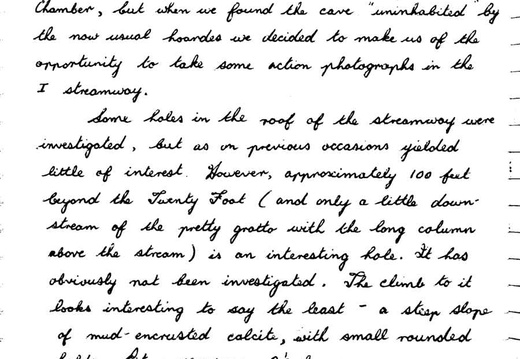 Chamber, but when we found the cave "uninhabited" by
the now usual hoardes we decided to make us of the
opportunity to take some action photographs in the
I streamway.
Some holes in the roof of the streamway were
investigated, but as on previous occasions yielded
little of interest. However, approximately 100 feet
beyond the Twenty Foot (and only a little down-
stream of the pretty grotto with the long column
above the stream) is an interesting hole. It has
obviously not been investigated. The climb to it
looks interesting to say the least - a steep slope
of mud-encrusted calcite, with small rounded